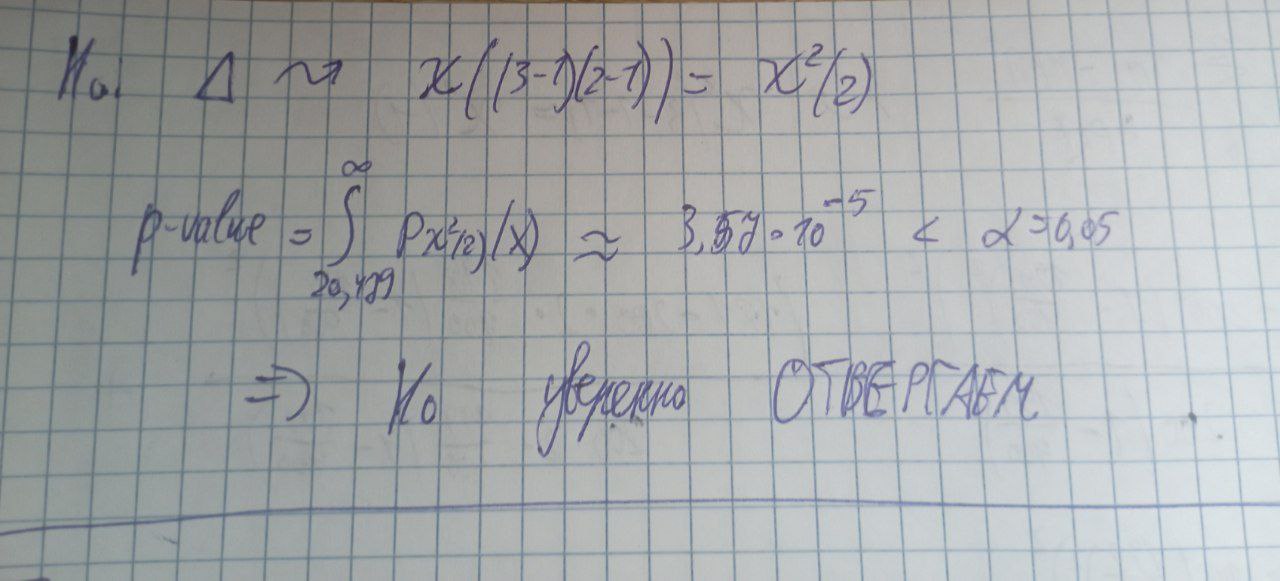 H₀: Δ ⇝ χ((3-1)(2-1)) = χ²(2)
p-value = ∫_{20,489}^{∞} p_{χ²(2)}(x) ≈ 3,57·10⁻⁵ < α=0,05
⇒ H₀ уверенно ОТВЕРГАЕМ